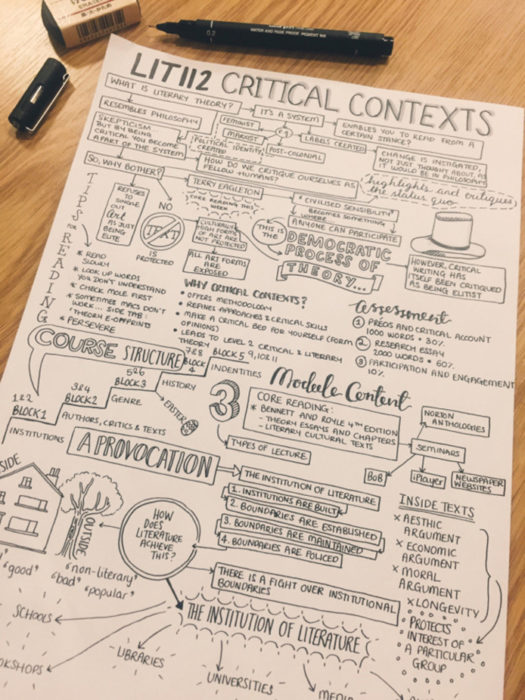 0.2
WATER AND FADE PROOF, PIGMENT INK
LIT112 CRITICAL CONTEXTS
WHAT IS LITERARY THEORY?
IT'S A SYSTEM
ENABLES YOU TO READ FROM A
CERTAIN STANCE?
RESEMBLES PHILOSOPHY
FEMINIST
MARXIST
POST-COLONIAL
LABELS CREATED
SKEPTICISM
BUT BY BEING
CRITICAL YOU BECOME
A PART OF THE SYSTEM
POLITICAL IDENTITY
CREATED
HOW DO WE CRITIQUE OURSELVES AS
FELLOW HUMANS?
CHANGE IS INSTIGATED,
NOT JUST THOUGHT ABOUT AS
IT WOULD BE IN PHILOSOPHY
highlights and critiques
the status quo
SO, WHY BOTHER?
TERRY EAGLETON
(CORE READING WEEK 1)
* CIVILISED SENSIBILITY
BECOMES SOMETHING
WHERE
ANYONE CAN PARTICIPATE
TIPS FOR READING
REFUSES TO
SINGLE
OUT
Art
AS JUST
BEING
ELITE
NO
TEXT
IS
PROTECTED
CULTURALLY
HIGH FORMS
OF ART ARE
NOT PROTECTED
ALL ART
FORMS ARE
EXPOSED
THIS IS
THE
DEMOCRATIC
PROCESS OF
THEORY...
HOWEVER, CRITICAL
WRITING HAS
ITSELF BEEN CRITIQUED
AS BEING ELITIST
* READ
SLOWLY
* LOOK UP WORDS
YOU DON'T UNDERSTAND
* CHECK MOLE FIRST
* SOMETIMES MACS DON'T
WORK... SIDE TAB:
THEORY E-OFFPRINTS
* PERSEVERE
WHY CRITICAL CONTEXTS?
• OFFERS METHODOLOGY
• REFINES APPROACHES & CRITICAL SKILLS
• MAKE A CRITICAL BED FOR YOURSELF (FORM
OPINIONS)
• LEADS TO LEVEL 2 CRITICAL & LITERARY
THEORY
Assessment
1 PREGS AND CRITICAL ACCOUNT
1000 WORDS * 30%.
2 RESEARCH ESSAY
2000 WORDS * 60%
3 PARTICIPATION AND ENGAGEMENT
10%
COURSE STRUCTURE
1 & 2
BLOCK 1
INSTITUTIONS
3 & 4
BLOCK 2
AUTHORS, CRITICS & TEXTS
5 & 6
BLOCK 3
GENRE
7 & 8
BLOCK
4
HISTORY
EASTER
BLOCK 5 9, 10 & 11
INDENTITIES
Module Content
3
CORE READING:
* BENNETT AND ROYLE 4TH EDITION
- THEORY ESSAYS AND CHAPTERS
- LITERARY CULTURAL TEXTS
TYPES OF LECTURE
NORTON
ANTHOLOGIES
SEMINARS
BOB
iPlayer
NEWSPAPER
WEBSITES
A PROVOCATION
THE INSTITUTION OF LITERATURE
1. INSTITUTIONS ARE BUILT
2. BOUNDARIES ARE ESTABLISHED
3. BOUNDARIES ARE MAINTAINED
4. BOUNDARIES ARE POLICED
THERE IS A FIGHT OVER INSTITUTIONAL
BOUNDARIES
SIDE
OUTSIDE
HOW
DOES
LITERATURE
ACHIEVE
THIS?
"good"
"bad"
"non-literary"
"popular"
INSIDE TEXTS
x AESTHIC
ARGUMENT
x ECONOMIC
ARGUMENT
x MORAL
ARGUMENT
x LONGEVITY
PROTECTS
INTEREST OF
A PARTICULAR
GROUP
THE INSTITUTION OF LITERATURE
SCHOOLS
OKSHOPS
LIBRARIES
UNIVERSITIES